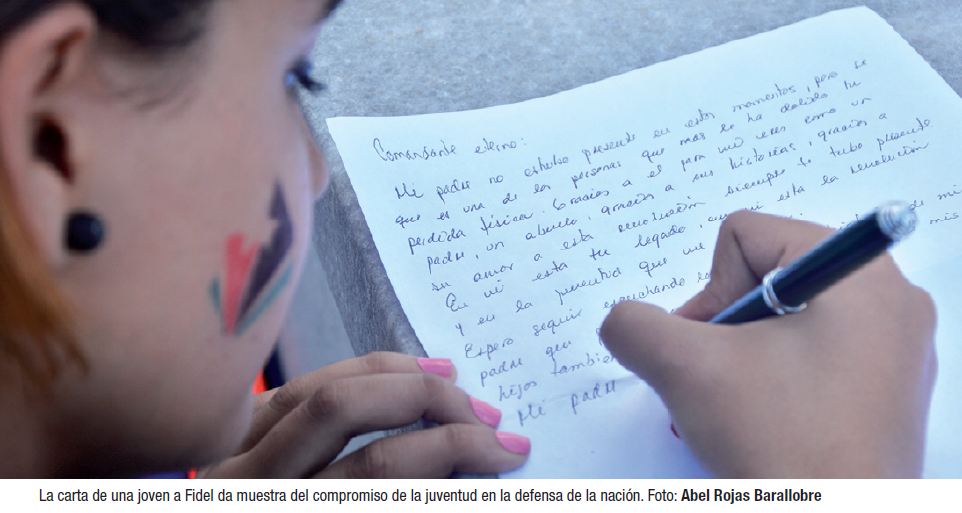 Comandante eterno:
Mi padre no estuvo presente en estos momentos, pero se
que es una de las personas que mas le ha dolido tu
perdida física. Gracias a el para mi eres como un
padre, un abuelo, gracias a sus historias, gracias a
su amor a esta revolución siempre te tubo presente
En mi esta tu legado, aqui esta la revolución
y en la juventud que me
Espero seguir escuchando de mi
padre que mis
hijos tambien
Mi padre
La carta de una joven a Fidel da muestra del compromiso de la juventud en la defensa de la nación. Foto: Abel Rojas Barallobre